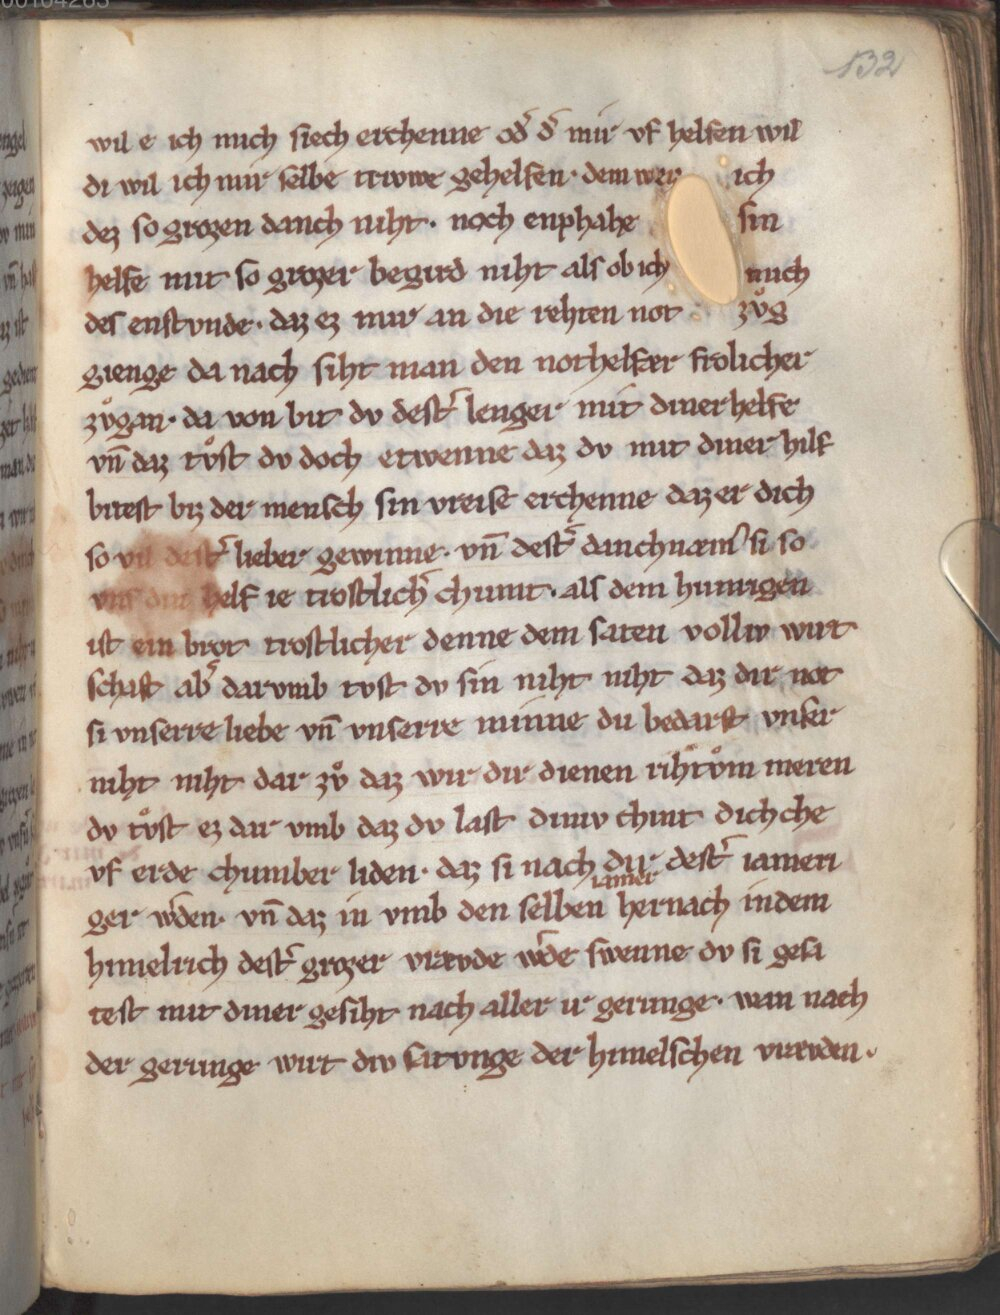 132
wil e ich mich siech erchenne od̄ d̄ mir vf helfen wil
di wil ich mir selbe itwwe gehelfen · dem wer ich
dez so grozen danch niht · noch enphahe sin
helfe mit so grozer begird niht als ob ich mich
des enstvnde · daz ez mir an die rehten not zvͦg
gienge da nach siht man den nothelfer frolicher
zvͦgan · da von bit dv dest̄ lenger mit diner helfe
vn̄ daz tvͦst dv doch etwenne daz dv mit diner hilf
bitest biz der mensch sin vreise erchenne daz er dich
so vil dest̄ lieber gewinne · vn̄ dest̄ danchnæm̄ si so
im din helf ie trostlich̄ chumt · als dem hunrigen
ist ein brot trostlicher denne dem saten volliv wirt
schaft ab̄ darvmb tvst dv sin niht niht daz dir not
si vnserre liebe vn̄ vnserre minne du bedarft vnser
niht niht dar zvͦ daz wir dir dienen rihtvͦm meren
dv tvͦst ez dar vmb daz dv last diniv chint dichche
vf erde chumber liden · daz si nach dir dest̄ iameri
ger w̄den · vn̄ daz in vmb den selben iamer hernach in dem
himelrich dest̄ grozer vrævde w̄de swenne dv si gesa
test mit diner gesiht nach aller ir gerunge · wan nach
der gerunge wirt div satvnge der himelschen vrævden ·